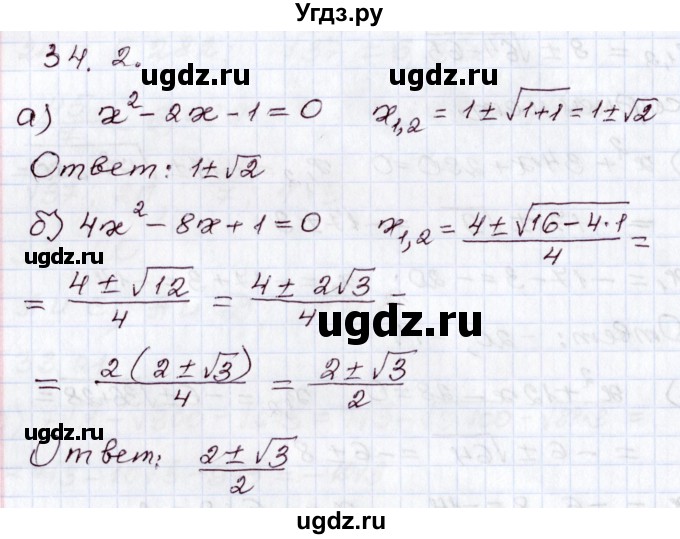 Угдз.ру
34. 2.
ugdz.ru ugdz.ru
а) x² - 2x - 1 = 0 x₁,₂ = 1 ± √(1+1) = 1 ± √2
Ответ: 1 ± √2
б) 4x² - 8x + 1 = 0 x₁,₂ = (4 ± √(16 - 4·1))/4 =
ugdz.ru
= (4 ± √12)/4 = (4 ± 2√3)/4 =
ugdz.ru
= 2(2 ± √3)/4 = (2 ± √3)/2
ugdz.ru
Ответ: (2 ± √3)/2
ugdz.ru